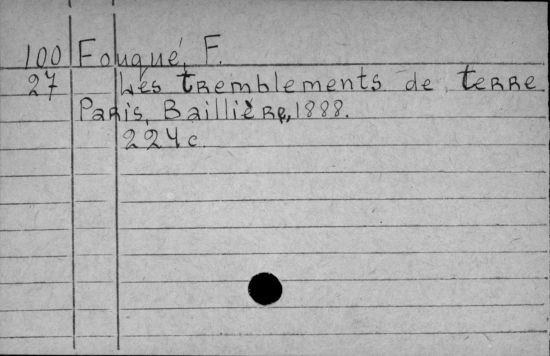 100 Fouqué, F.
27 Les tremblements de terre.
Paris, Baillière, 1888.
224 c.